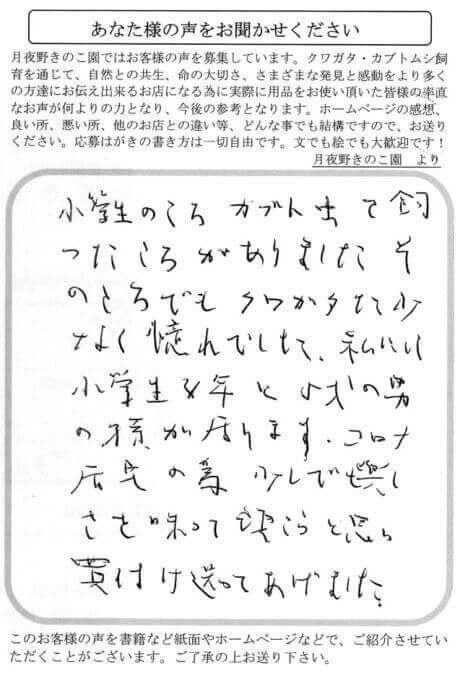 あなた様の声をお聞かせください
月夜野きのこ園ではお客様の声を募集しています。クワガタ・カブトムシ飼
育を通じて、自然との共生、命の大切さ、さまざまな発見と感動をより多く
の方達にお伝え出来るお店になる為に実際に用品をお使い頂いた皆様の率直
なお声が何よりの力となり、今後の参考となります。ホームページの感想、
良い所、悪い所、他のお店との違い等、どんな事でも結構ですので、お送り
ください。応募はがきの書き方は一切自由です。文でも絵でも大歓迎です！
月夜野きのこ園　より
小学生のころ カブト虫 て飼
ったころがありました そ
のころでも クワガタは少
なく憧れでした、私には
小学生 年と 才の男
の孫が居ります. コロナ
の為 少しで
さを味って 思い
買付け送ってあげました。
このお客様の声を書籍など紙面やホームページなどで、ご紹介させてい
ただくことがございます。ご了承の上お送り下さい。